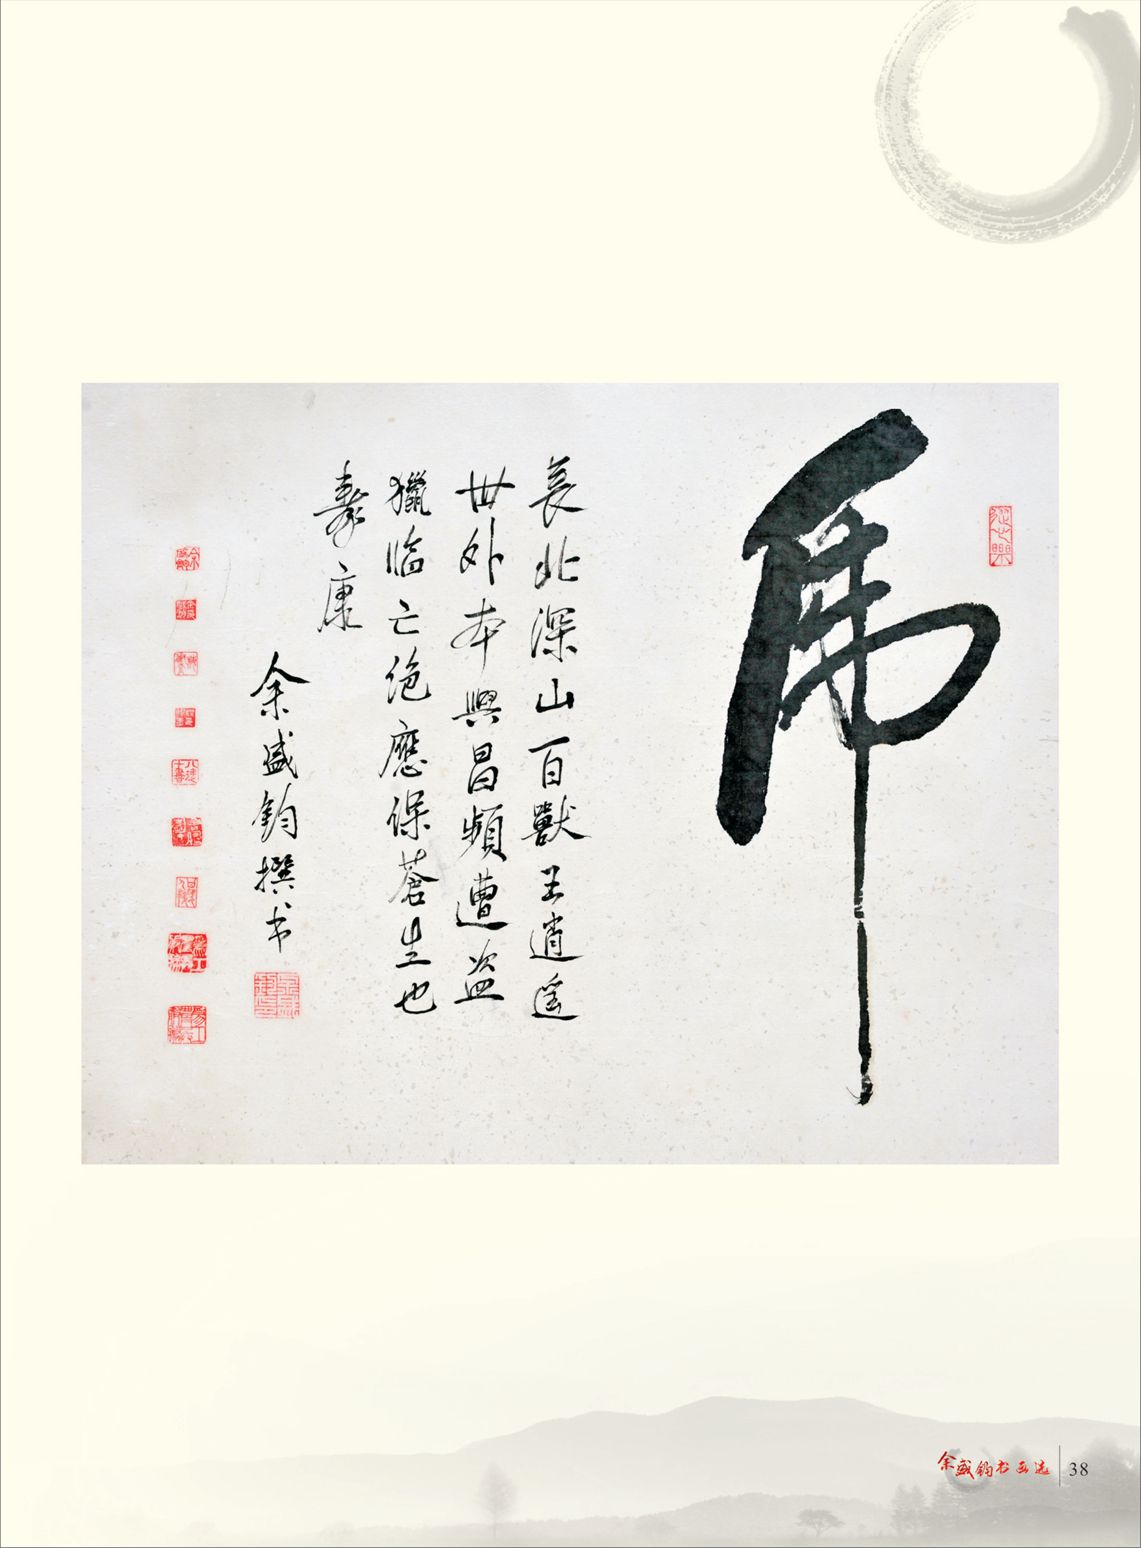 虎
長北深山百獸王逍遥
世外本興昌頻遭盗
獵临亡绝應保蒼生也
壽康
余盛钧撰书
余盛钧书画选
38